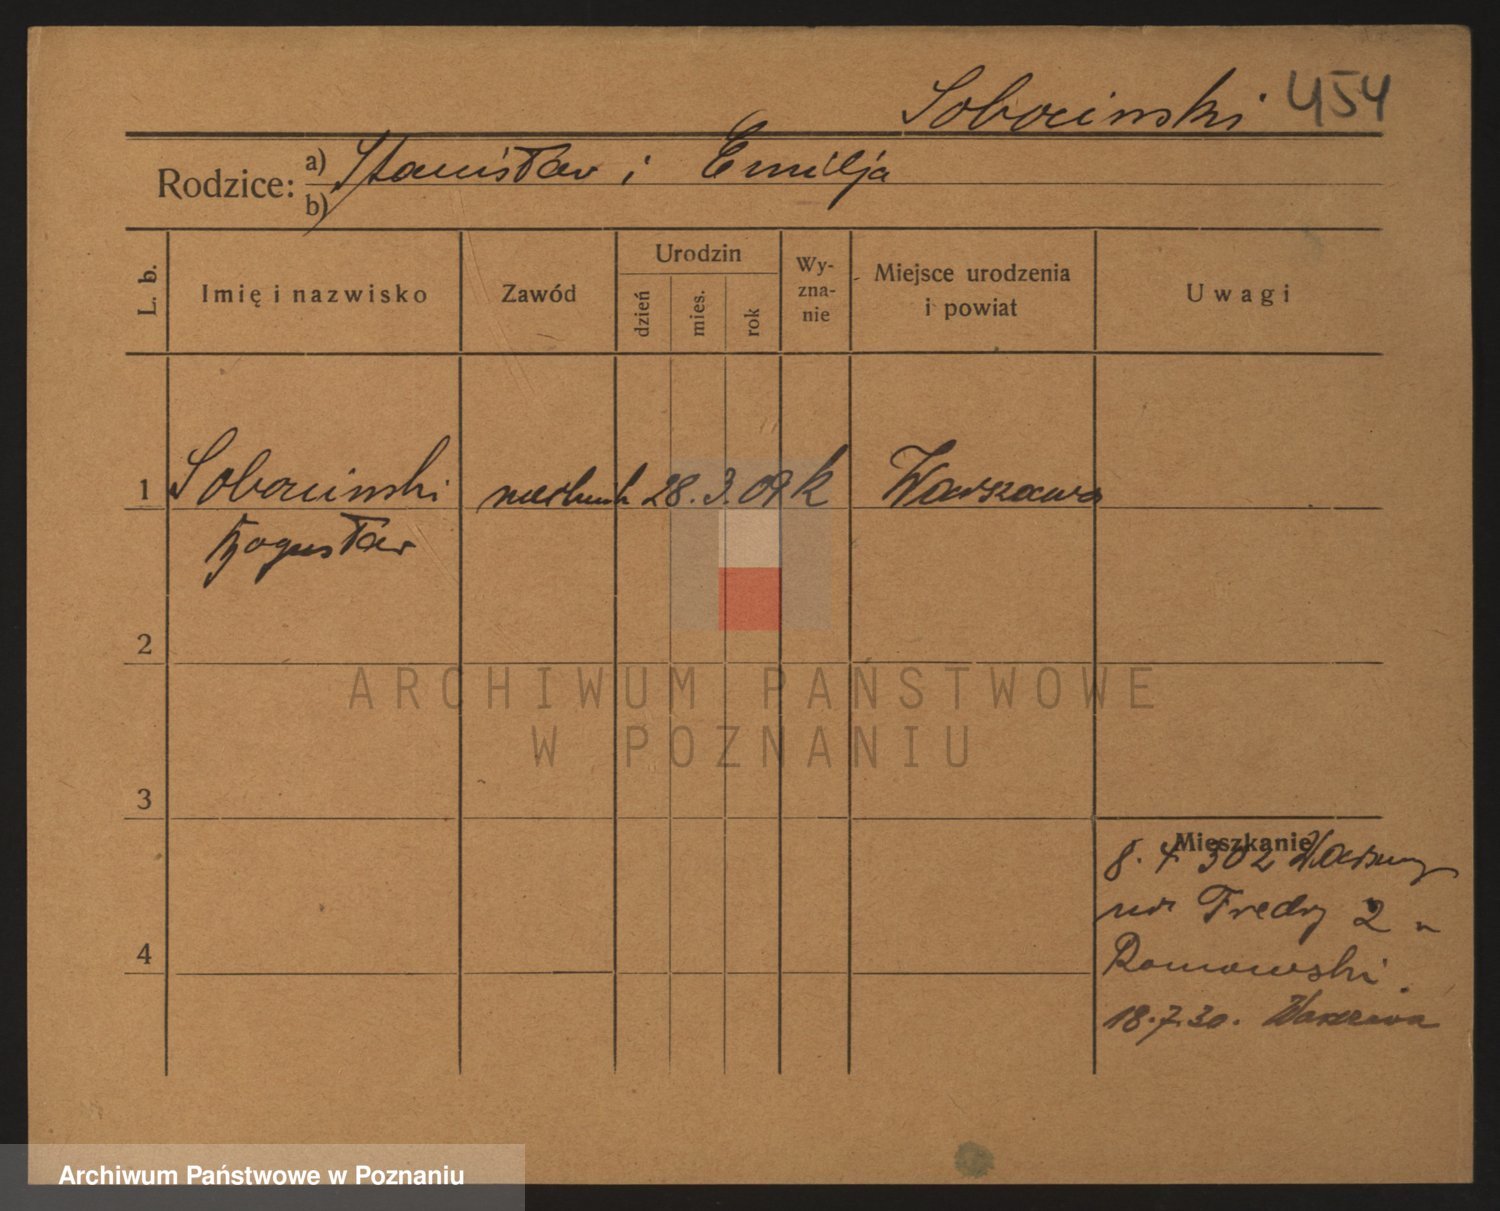 Sobocinski 454
Rodzice: a) Stanisław i Emilja
b)
L. b.
Imię i nazwisko
Zawód
Urodzin
dzień
mies.
rok
Wy-
zna-
nie
Miejsce urodzenia
i powiat
Uwagi
1 Sobocinski 28. 3. 09 k Warszawa
Bogusław
2
3
4
Mieszkanie
8. 4 30
Fredry 2
18.7.30. Warszawa
ARCHIWUM PAŃSTWOWE
W POZNANIU
Archiwum Państwowe w Poznaniu